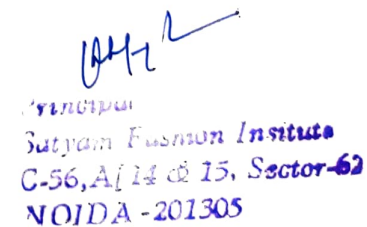 Principal
Satyam Fashion Insitute
C-56, A/ 14 & 15, Sector-62
NOIDA -201305